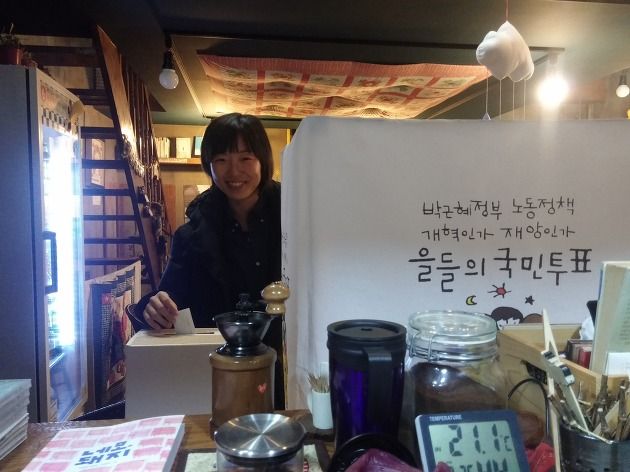 박근혜정부 노동정책
개혁인가 재앙인가
을들의 국민투표
돼지
TEMPERATURE
21.1